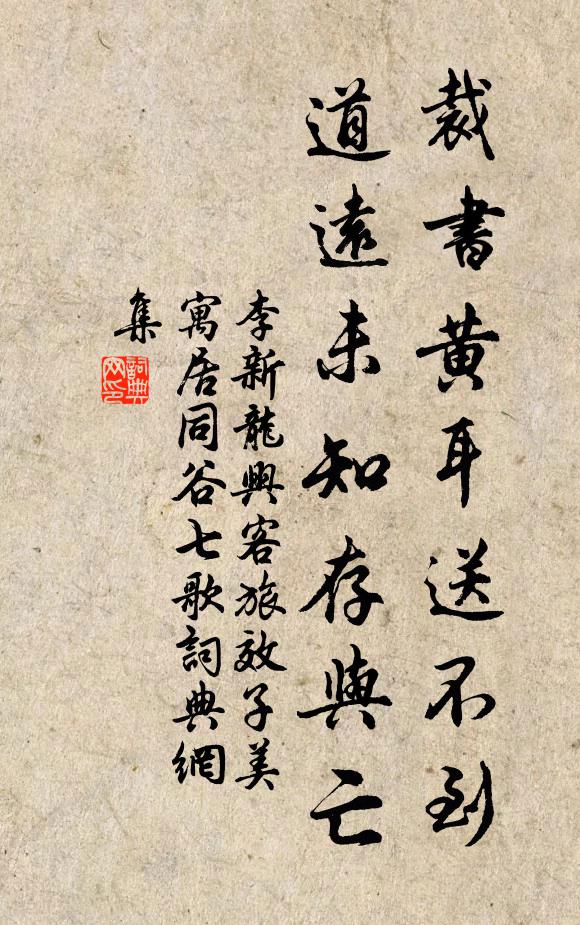 裁書黄耳送不到
道遠未知存與亡
李新龍興客旅效子美
寓居同谷七歌詞典網
集
詞典
网印